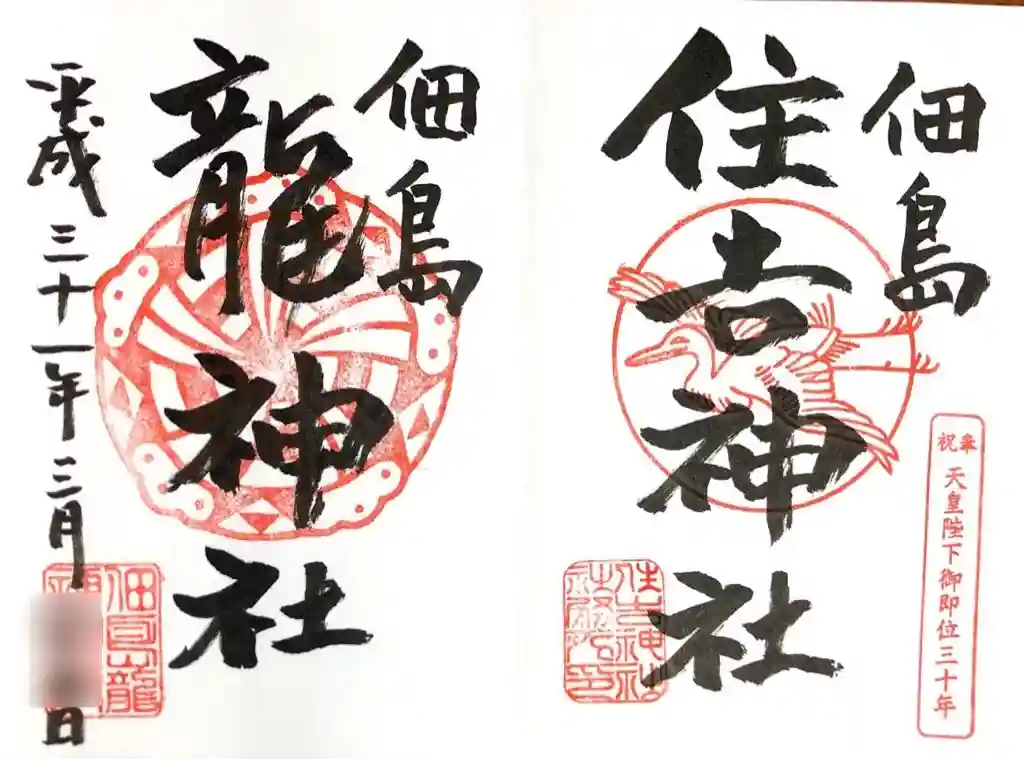 佃島
住吉神社
奉祝
天皇陛下御即位三十年
住吉神社
社務所印
佃島
龍神社
平成三十一年三月
日